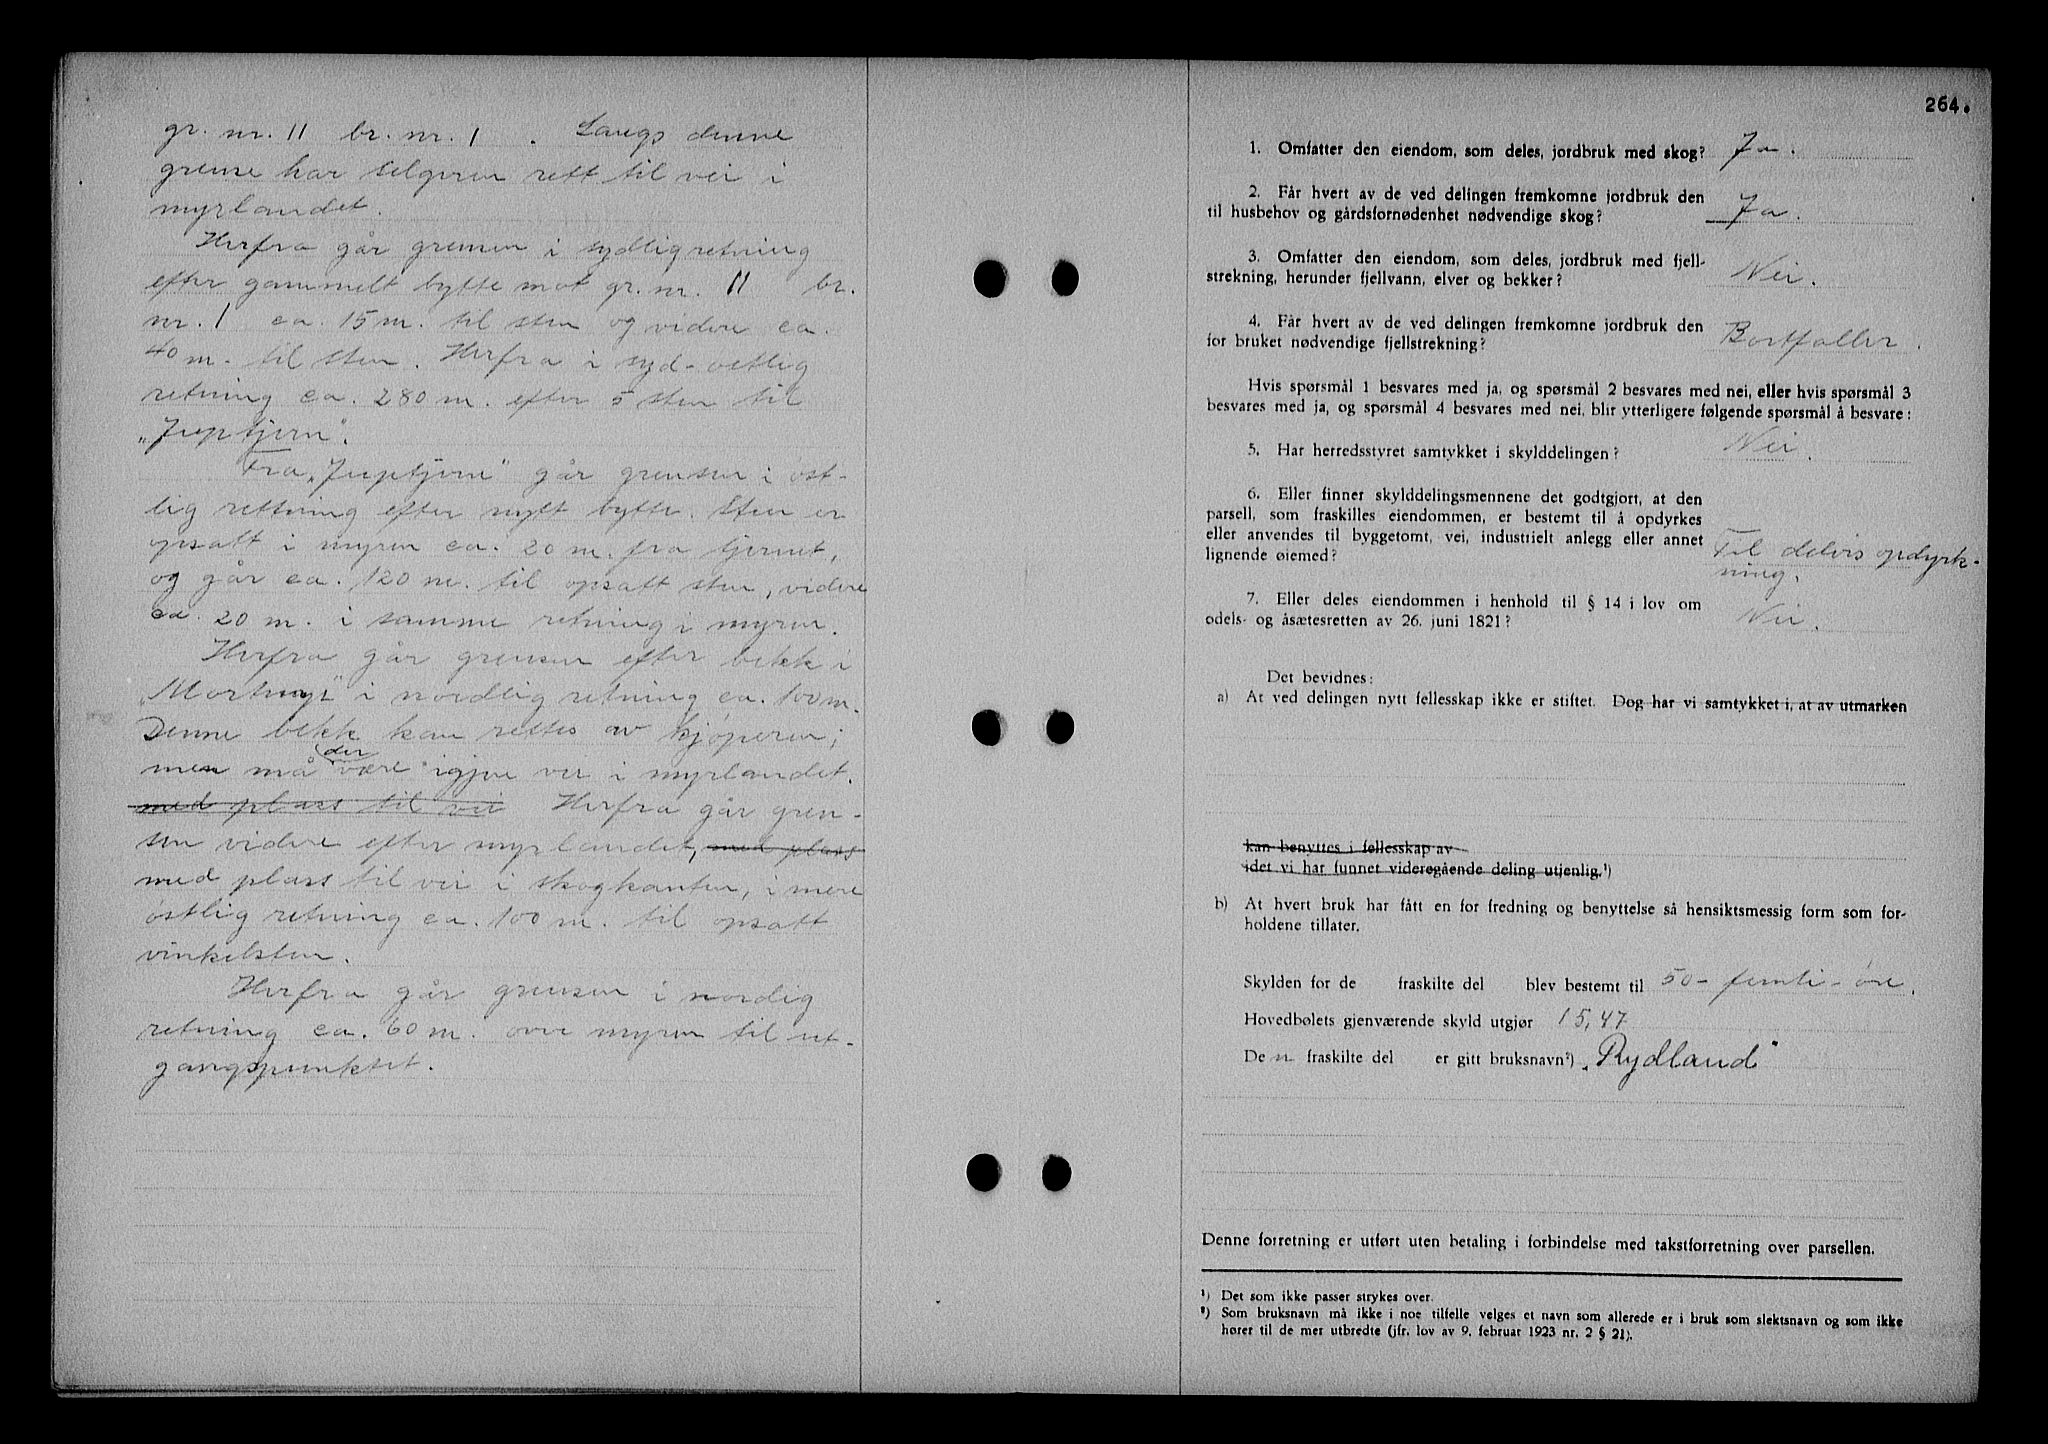 gr. nr. 11 br. nr. 1 . Langs denne
grense har selgeren rett til vei i
myrlandet.
Herfra går grensen i sydlig retning
efter gammelt bytte mot gr. nr. 11 br.
nr. 1 ca. 15 m. til sten og videre ca.
40 m. til sten. Herfra i syd-vestlig
retning ca. 280 m. efter 5 sten til
"Juptjern".
Fra "Juptjern" går grensen i øst-
lig rettning efter nytt bytte. Sten er
opsatt i myren ca. 20 m. fra tjernet,
og går ca. 120 m. til opsatt sten, videre
ca. 20 m. i samme retning i myren.
Herfra går grensen efter bekk i
i nordlig retning ca. 100 m.
Denne bekk kan rettes av kjøperen;
men må der være igjen vei i myrlandet.
med plass til vei Herfra går gren-
sen videre efter myrlandet, med plass
med plass til vei i skogkanten, i mere
østlig retning ca. 100 m. til opsatt
vinkelsten.
Herfra går grensen i nordig
retning ca. 60 m. over myren til ut-
gangspunktet.
264.
1. Omfatter den eiendom, som deles, jordbruk med skog? Ja.
2. Får hvert av de ved delingen fremkomne jordbruk den
til husbehov og gårdsfornødenhet nødvendige skog? Ja.
3. Omfatter den eiendom, som deles, jordbruk med fjell-
strekning, herunder fjellvann, elver og bekker? Nei.
4. Får hvert av de ved delingen fremkomne jordbruk den
for bruket nødvendige fjellstrekning? Bortfaller.
Hvis spørsmål 1 besvares med ja, og spørsmål 2 besvares med nei, eller hvis spørsmål 3
besvares med ja, og spørsmål 4 besvares med nei, blir ytterligere følgende spørsmål å besvare:
5. Har herredsstyret samtykket i skylddelingen? Nei.
6. Eller finner skylddelingsmennene det godtgjort, at den
parsell, som fraskilles eiendommen, er bestemt til å opdyrkes
eller anvendes til byggetomt, vei, industrielt anlegg eller annet
lignende øiemed? Til delvis opdyrk-
ning.
7. Eller deles eiendommen i henhold til § 14 i lov om
odels- og åsætesretten av 26. juni 1821? Nei.
Det bevidnes:
a) At ved delingen nytt fellesskap ikke er stiftet. Dog har vi samtykket i, at av utmarken
kan benyttes i fellesskap av
idet vi har funnet videregående deling utjenlig.¹)
b) At hvert bruk har fått en for fredning og benyttelse så hensiktsmessig form som for-
holdene tillater.
Skylden for de fraskilte del blev bestemt til 50 - femti - øre.
Hovedbølets gjenværende skyld utgjør 15,47
Den fraskilte del er gitt bruksnavn²) "Rydland"
Denne forretning er utført uten betaling i forbindelse med takstforretning over parsellen.
¹) Det som ikke passer strykes over.
²) Som bruksnavn må ikke i noe tilfelle velges et navn som allerede er i bruk som slektsnavn og som ikke
hører til de mer utbredte (jfr. lov av 9. februar 1923 nr. 2 § 21).